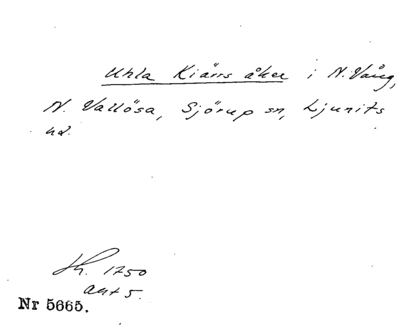 Uhla Kiärrs åker i N. Vång,
N. Vallösa, Sjörup sn, Ljunits
hd.
Lh. 1750
akt 5.
Nr 5665.